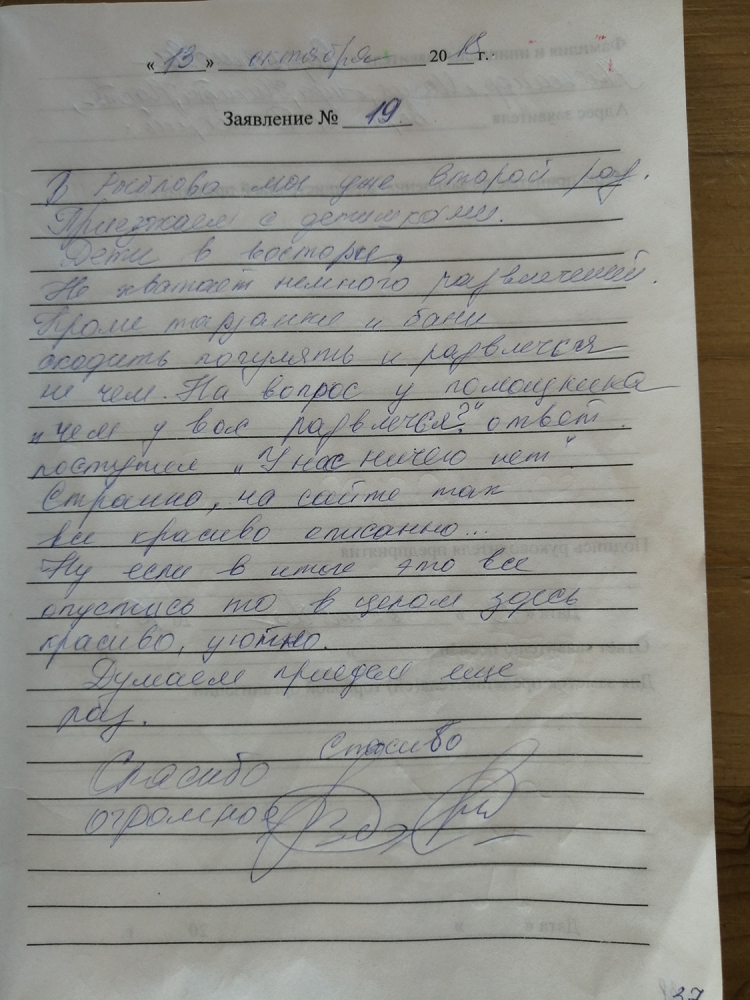 « 13 » октября 20 18 г.
Заявление № 19
В мы уже второй раз.
Приезжаем с детишками.
Дети в восторге,
Не хватает немного развлечений.
Кроме тарзанке и бани
сходить погулять и развлечся
не чем. На вопрос у помощника
„чем у вас развлечся?" ответ
поступил „У нас ничего нет"
Странно, на сайте так
все красиво описанно...
Ну если в итоге это все
опустить то в целом здесь
красиво, уютно.
Думаем приедем еще
раз.
Спасибо
Спасибо
огромное
37